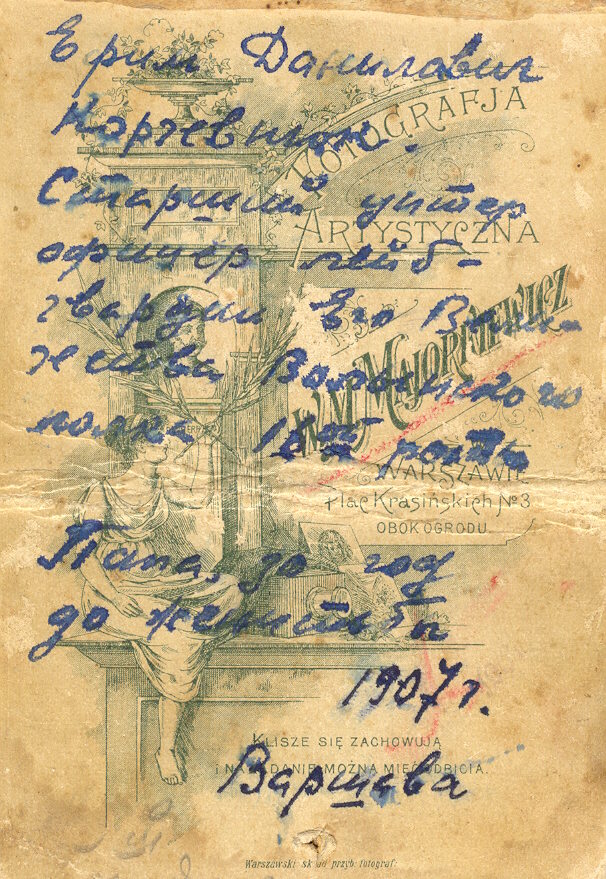 Ефим Данилович
Корчевский.
Старший унтер
офицер лейб-
гвардии Его Величе
жества Волынского
полка 15ой роты
Папа, за год
до женитьбы
1907 г.
Варшава
FOTOGRAFJA
ARTYSTYCZNA
W. MAJORKIEWICZ
WARSZAWIE
Plac Krasińskich No 3
OBOK OGRODU
KLISZE SIĘ ZACHOWUJĄ
I NA ŻĄDANIE MOŻNA MIEĆ ODBICIA.
Warszawski skład przyb: fotograf: